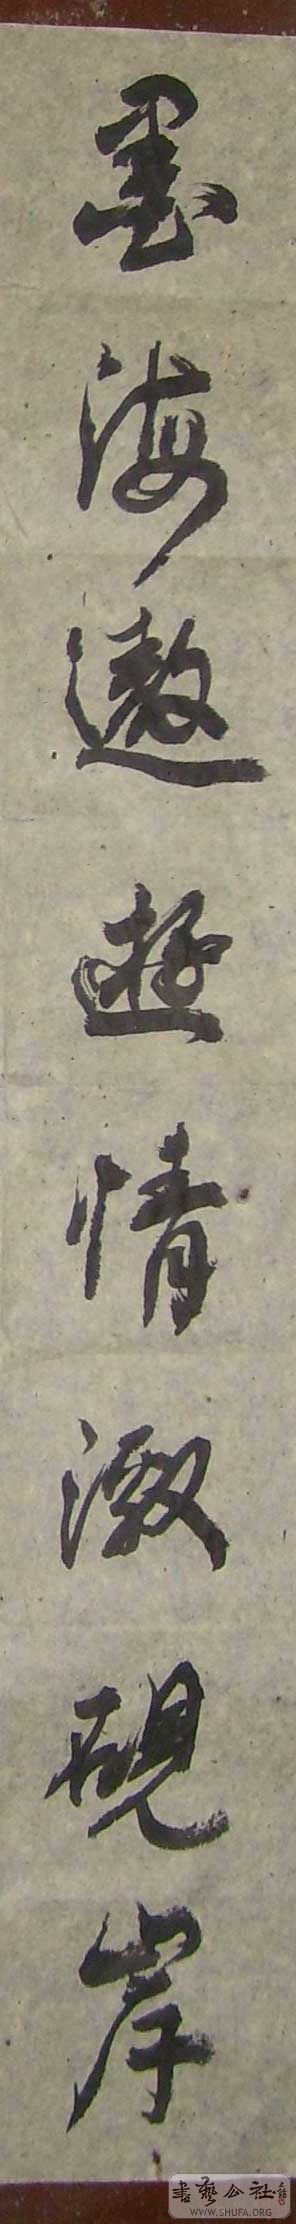 墨海遨遊情激硯岸
書藝公社
WWW.SHUFA.ORG